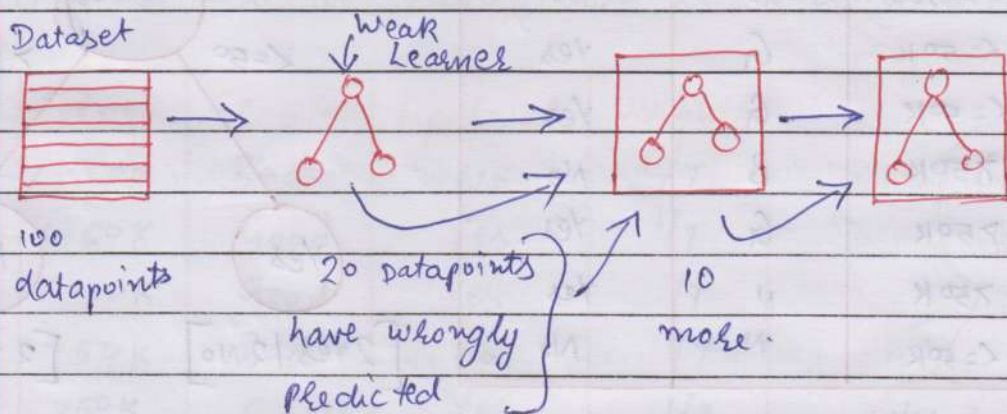 Dataset
Weak
Learner
100
datapoints
20 Datapoints
have wrongly
predicted
10
more.